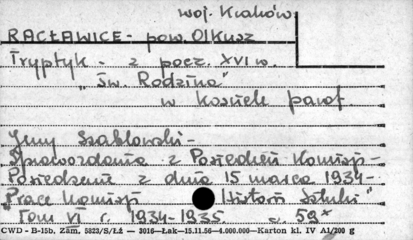 woj. Kraków
RACŁAWICE - pow. Olkusz
Tryptyk - z pocz. XVI w.
"Św. Rodzina"
w kościele paraf.
Jerzy Szablowski -
Sprawozdania z Posiedzeń Komisji -
Posiedzenie z dnia 15 marca 1934 -
"Prace Komisji Historii Sztuki"
Tom VI r. 1934-1935 s. 59*
CWD - B-15b, Zam. 5823/S/Łż — 3016—Łak—15.11.56—4.000.000—Karton kl. IV A1/200 g